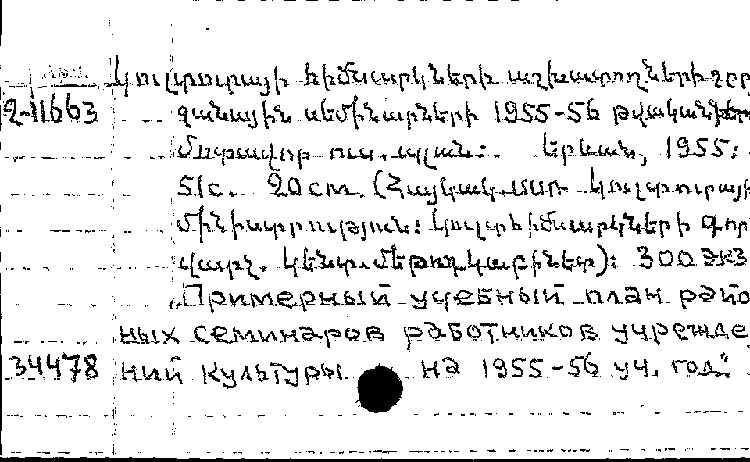 Կուլտուրայի հիմնարկների աշխատողների շըր
2-11663 ջանային սեմինարների 1955-56 թվականների
մոտավոր ուս. պլան: Երևան, 1955:
51с. 20см. (Հայկական ՍՍՌ Կուլտուրայի
մինիստրություն: Կուլտհիմնարկների գլխ
վարչ. կենտ. մեթոդ. կաբինետ): 300 экз
„Примерный учебный план райо
ных семинаров работников учрежде
34478 ний культуры на 1955-56 уч. год."